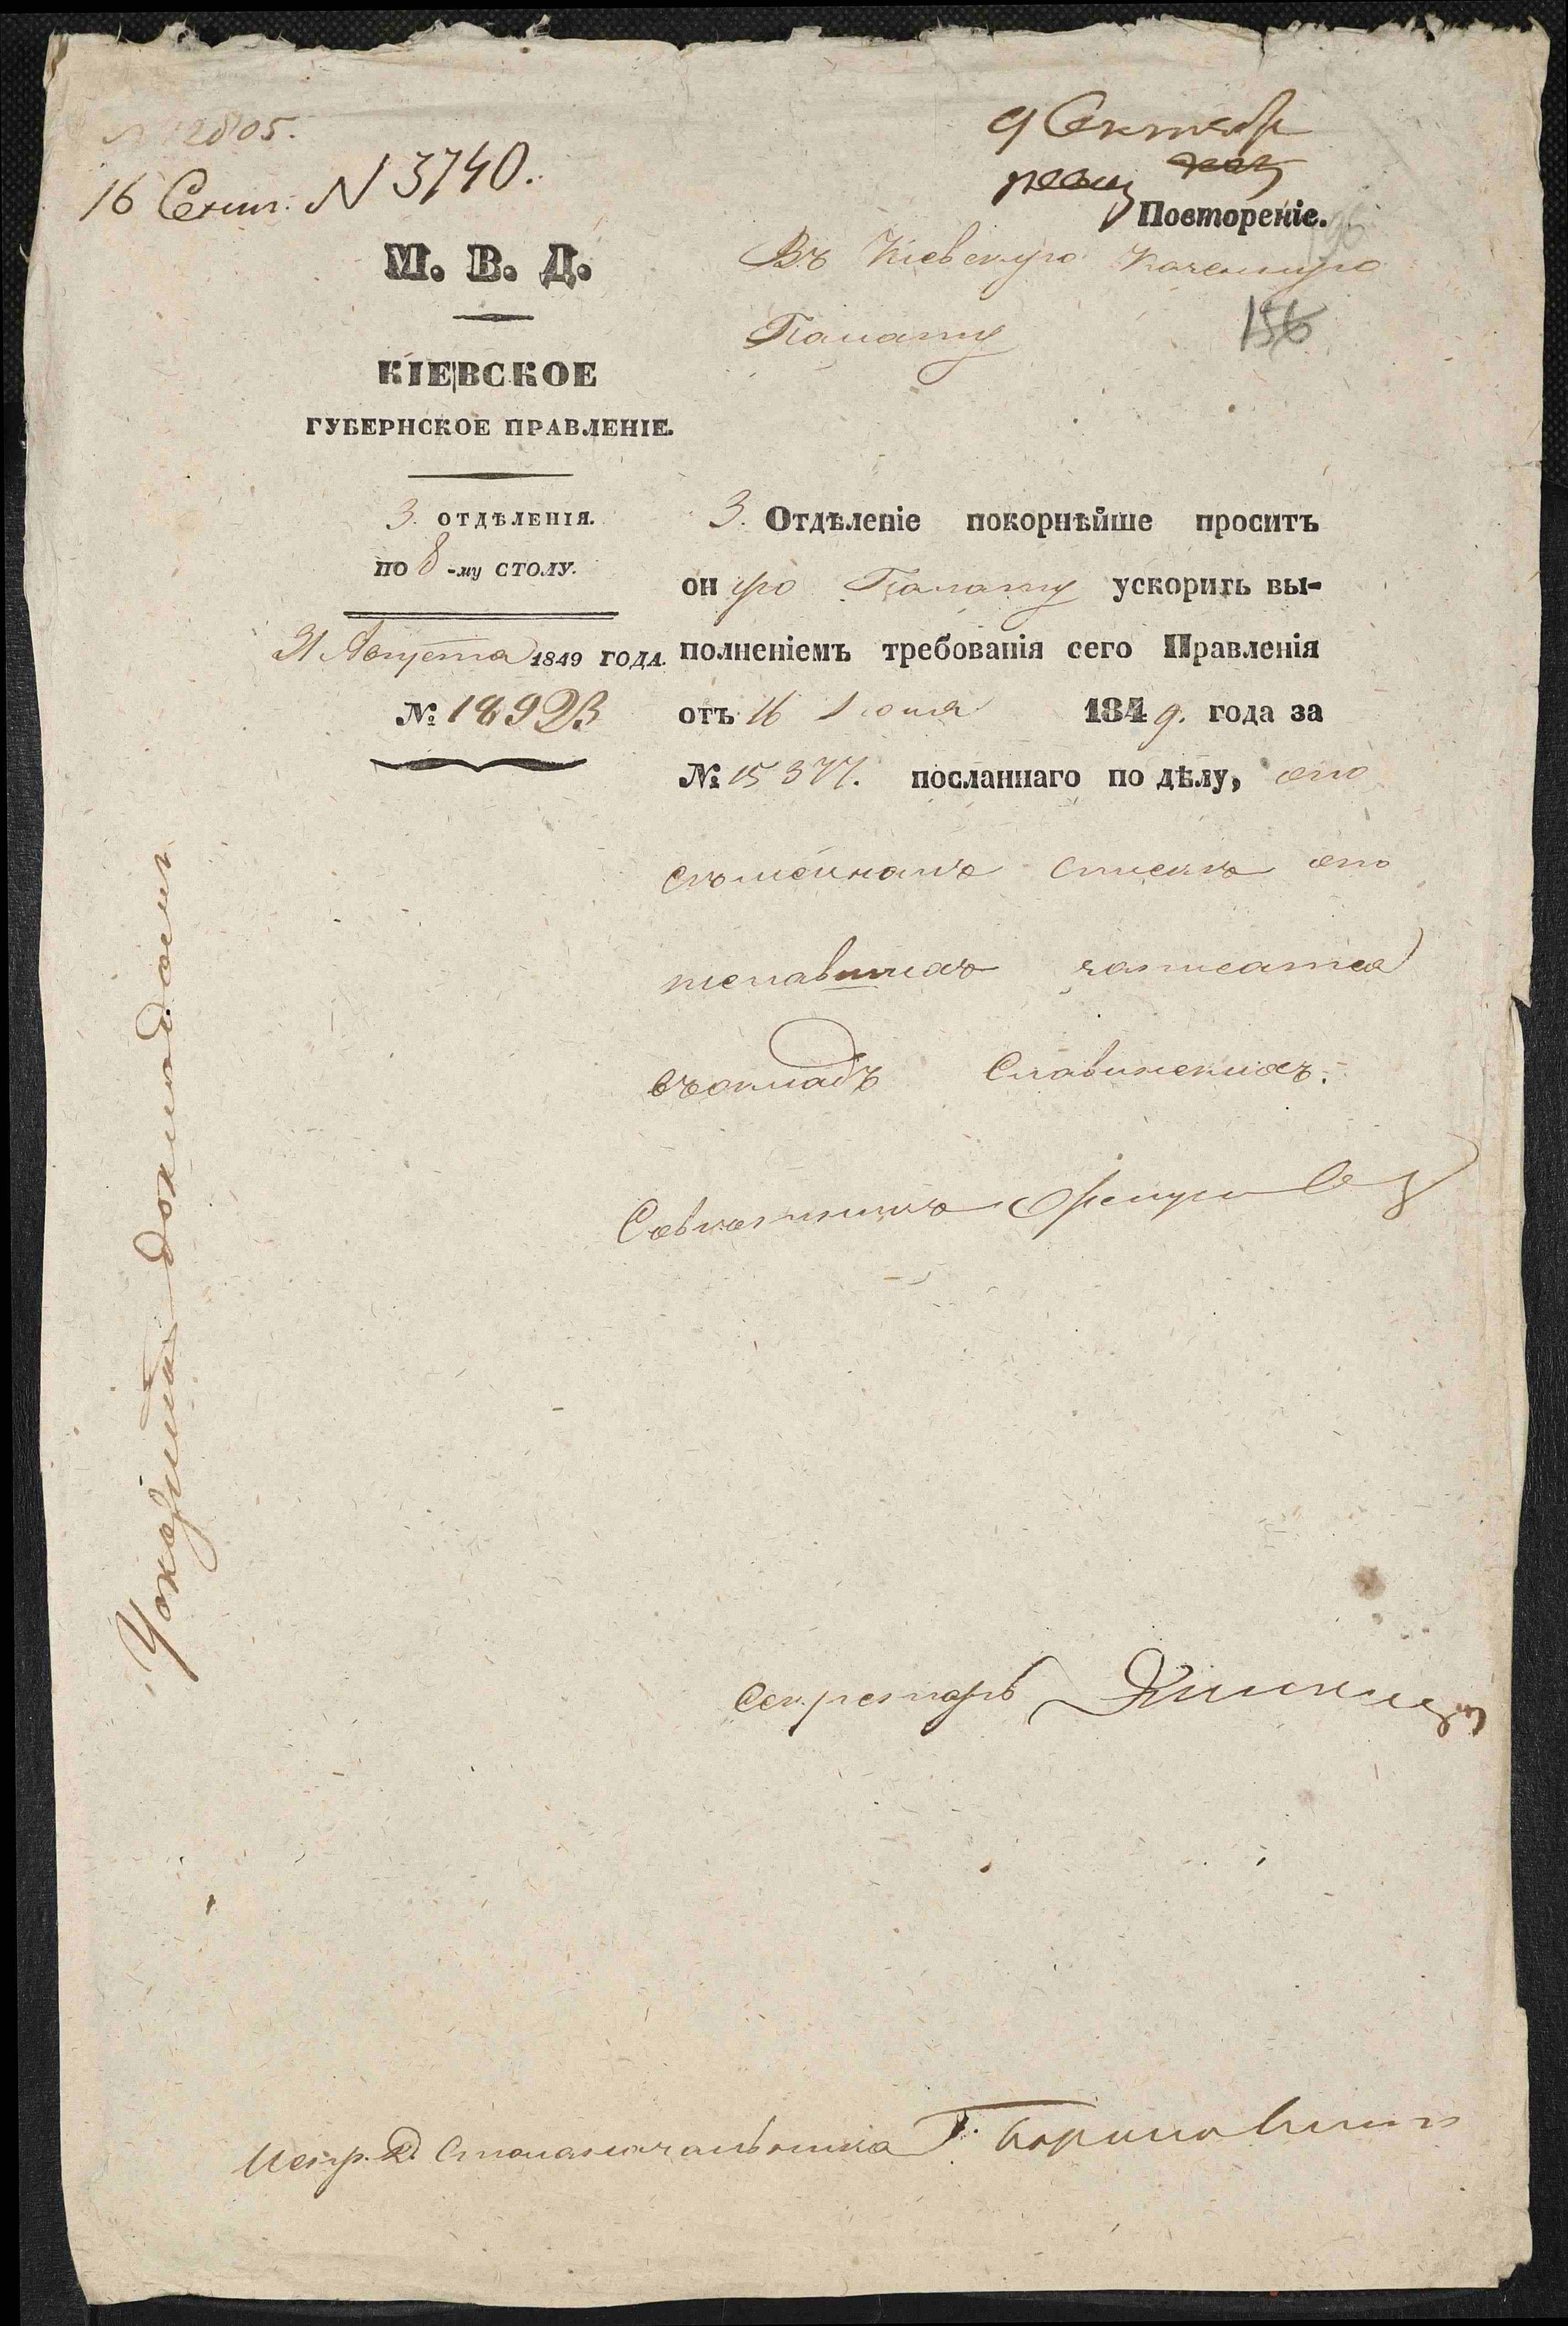 № 12805.
16 Сент. N 3740.
9 Сентябр
Повтореніе.
М. В. Д.
КІЕВСКОЕ
ГУБЕРНСКОЕ ПРАВЛЕНІЕ.
3. ОТДѢЛЕНІЯ.
ПО 8-му СТОЛУ.
31 Августа 1849 ГОДА.
№ 18923
Въ Кіевскую Казенную
Палату
156
3. Отдѣленіе покорнѣйше проситъ
оную Палату ускорить вы-
полненіемъ требованія сего Правленія
отъ 16 Іюня 1849. года за
№ 15377. посланнаго по дѣлу, о
записатся
въокладъ Славинскихъ.
Совѣтникъ
Секретарь
Испр. Д. Столаначальника Т.
Ускорить докладомъ